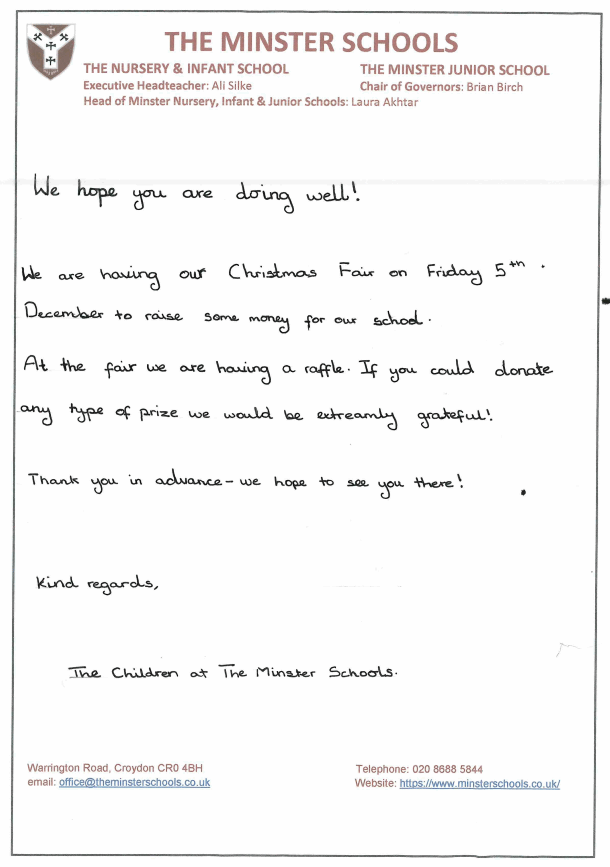 THE MINSTER SCHOOLS
THE NURSERY & INFANT SCHOOL THE MINSTER JUNIOR SCHOOL
Executive Headteacher: Ali Silke Chair of Governors: Brian Birch
Head of Minster Nursery, Infant & Junior Schools: Laura Akhtar
We hope you are doing well!
We are having our Christmas Fair on Friday 5th
December to raise some money for our school.
At the fair we are having a raffle. If you could donate
any type of prize we would be extreamly grateful!
Thank you in advance - we hope to see you there!
Kind regards,
The Children at The Minster Schools.
Warrington Road, Croydon CR0 4BH Telephone: 020 8688 5844
email: office@theminsterschools.co.uk Website: https://www.minsterschools.co.uk/